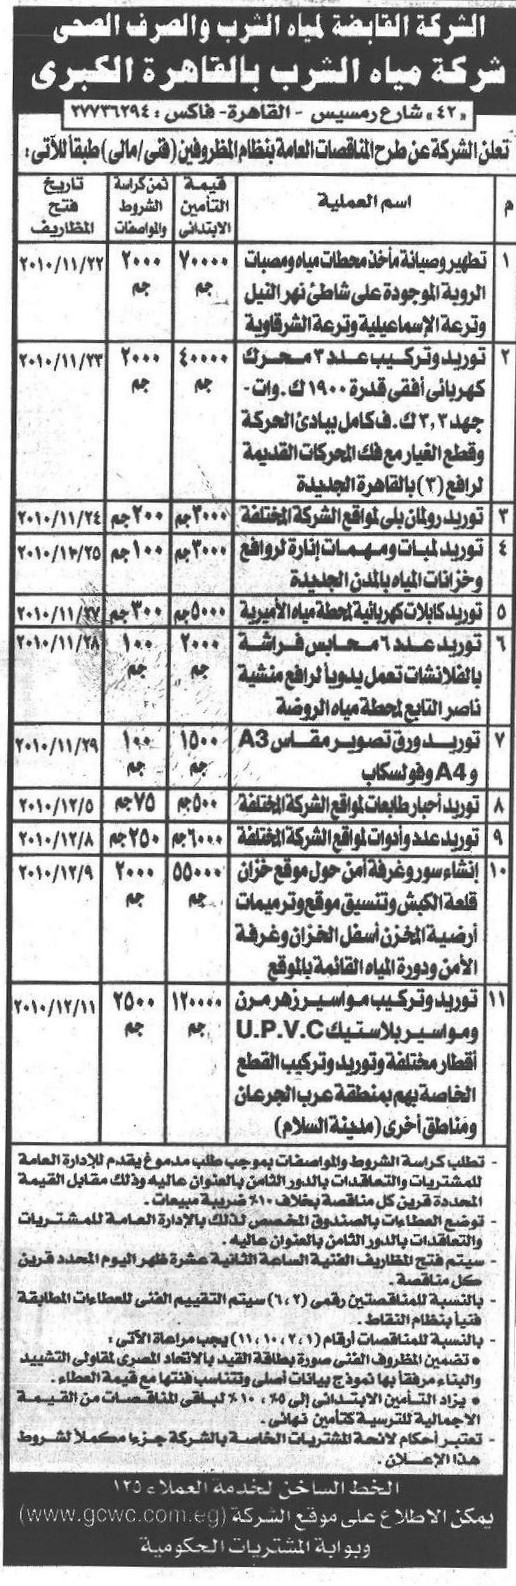 الشركة القابضة لمياه الشرب والصرف الصحى
شركة مياه الشرب بالقاهرة الكبرى
«٤٢» شارع رمسيس - القاهرة - فاكس: ٢٧٧٣٦٢٩٤
تعلن الشركة عن طرح المناقصات العامة بنظام المظروفين (فنى/مالى) طبقاً للآتى:
م اسم العملية قيمة التأمين الابتدائى ثمن كراسة الشروط والمواصفات تاريخ فتح المظاريف
١ تطهير وصيانة مآخذ محطات مياه ومصبات ٧٠٠٠٠ جم ٢٠٠٠ جم ٢٠١٠/١١/٢٢
الروبة الموجودة على شاطئ نهر النيل
وترعة الإسماعيلية وترعة الشرقاوية
٢ توريد وتركيب عدد ٣ محرك ٤٠٠٠٠ جم ٢٠٠٠ جم ٢٠١٠/١١/٢٣
كهربائى أفقى قدرة ١٩٠٠ ك.وات-
جهد ٣,٣ ك.ف كامل ببادئ الحركة
وقطع الغيار مع فك المحركات القديمة
لرافع (٣) بالقاهرة الجديدة
٣ توريد رولمان بلى لمواقع الشركة المختلفة ٣٠٠٠جم ٢٠٠جم ٢٠١٠/١١/٢٤
٤ توريد لمبات ومهمات إنارة لروافع ٣٠٠٠جم ١٠٠جم ٢٠١٠/١٢/٢٥
وخزانات المياه بالمدن الجديدة
٥ توريد كابلات كهربائية لمحطة مياه الأميرية ٥٠٠٠جم ٣٠٠جم ٢٠١٠/١١/٢٧
٦ توريد عدد ٦ محابس فراشة ٢٠٠٠ جم ١٠٠ جم ٢٠١٠/١١/٢٨
بالفلانشات تعمل يدوياً لرافع منشية
ناصر التابع لمحطة مياه الروضة
٧ توريد ورق تصوير مقاس A3 ١٥٠٠ جم ١٠٠ جم ٢٠١٠/١١/٢٩
و A4 وفولسكاب
٨ توريد أحبار طابعات لمواقع الشركة المختلفة ٥٠٠جم ٧٥جم ٢٠١٠/١٢/٥
٩ توريد عدد وأدوات لمواقع الشركة المختلفة ٦٠٠٠جم ٢٥٠جم ٢٠١٠/١٢/٨
١٠ إنشاء سور وغرفة أمن حول موقع خزان ٥٥٠٠٠ جم ٢٠٠٠ جم ٢٠١٠/١٢/٩
قلعة الكبش وتنسيق موقع وترميمات
أرضية المخزن أسفل الخزان وغرفة
الأمن ودورة المياه القائمة بالموقع
١١ توريد وتركيب مواسير زهر مرن ١٢٠٠٠٠ جم ٢٥٠٠ جم ٢٠١٠/١٢/١١
ومواسير بلاستيك U.P.V.C
أقطار مختلفة وتوريد وتركيب القطع
الخاصة بهم بمنطقة عرب الجرعان
ومناطق أخرى (مدينة السلام)
- تطلب كراسة الشروط والمواصفات بموجب طلب مدموغ يقدم للإدارة العامة
للمشتريات والتعاقدات بالدور الثامن بالعنوان عاليه وذلك مقابل القيمة
المحددة قرين كل مناقصة بخلاف ١٠٪ ضريبة مبيعات.
- توضع العطاءات بالصندوق المخصص لذلك بالإدارة العامة للمشتريات
والتعاقدات بالدور الثامن بالعنوان عاليه.
- سيتم فتح المظاريف الفنية الساعة الثانية عشرة ظهر اليوم المحدد قرين
كل مناقصة.
- بالنسبة للمناقصتين رقمى (٦،٢) سيتم التقييم الفنى للعطاءات المطابقة
فنياً بنظام النقاط.
- بالنسبة للمناقصات أرقام (١، ٢، ١٠، ١١) يجب مراعاة الآتى:
• تضمين المظروف الفنى صورة بطاقة القيد بالاتحاد المصرى لمقاولى التشييد
والبناء مرفقاً بها نموذج بيانات أصلى وتتناسب فئتها مع قيمة العطاء.
• يزاد التأمين الابتدائى إلى ٥٪، ١٠٪ لباقى المناقصات من القيمة
الاجمالية للترسية كتأمين نهائى.
- تعتبر أحكام لائحة المشتريات الخاصة بالشركة جزءا مكملاً لشروط
هذا الإعلان.
الخط الساخن لخدمة العملاء ١٢٥
يمكن الاطلاع على موقع الشركة (www.gcwc.com.eg)
وبوابة المشتريات الحكومية